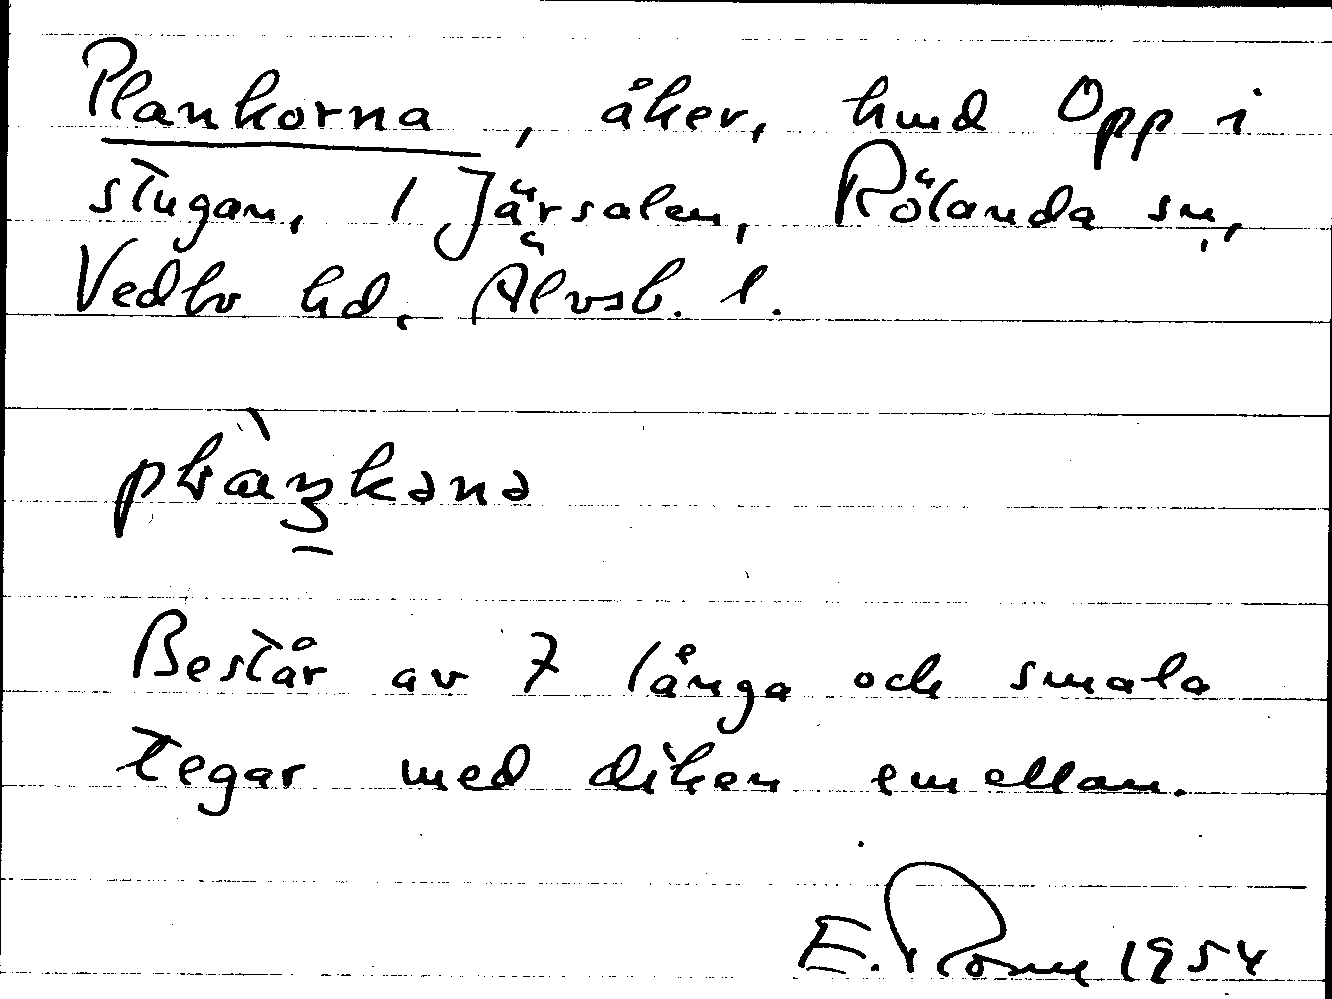 Plankorna, åker, hmd Opp i
stugan, 1 Järsalen, Rölanda sn,
Vedbo hd, Älvsb. l.
Består av 7 långa och smala
tegar med diken emellan.
E. 1954